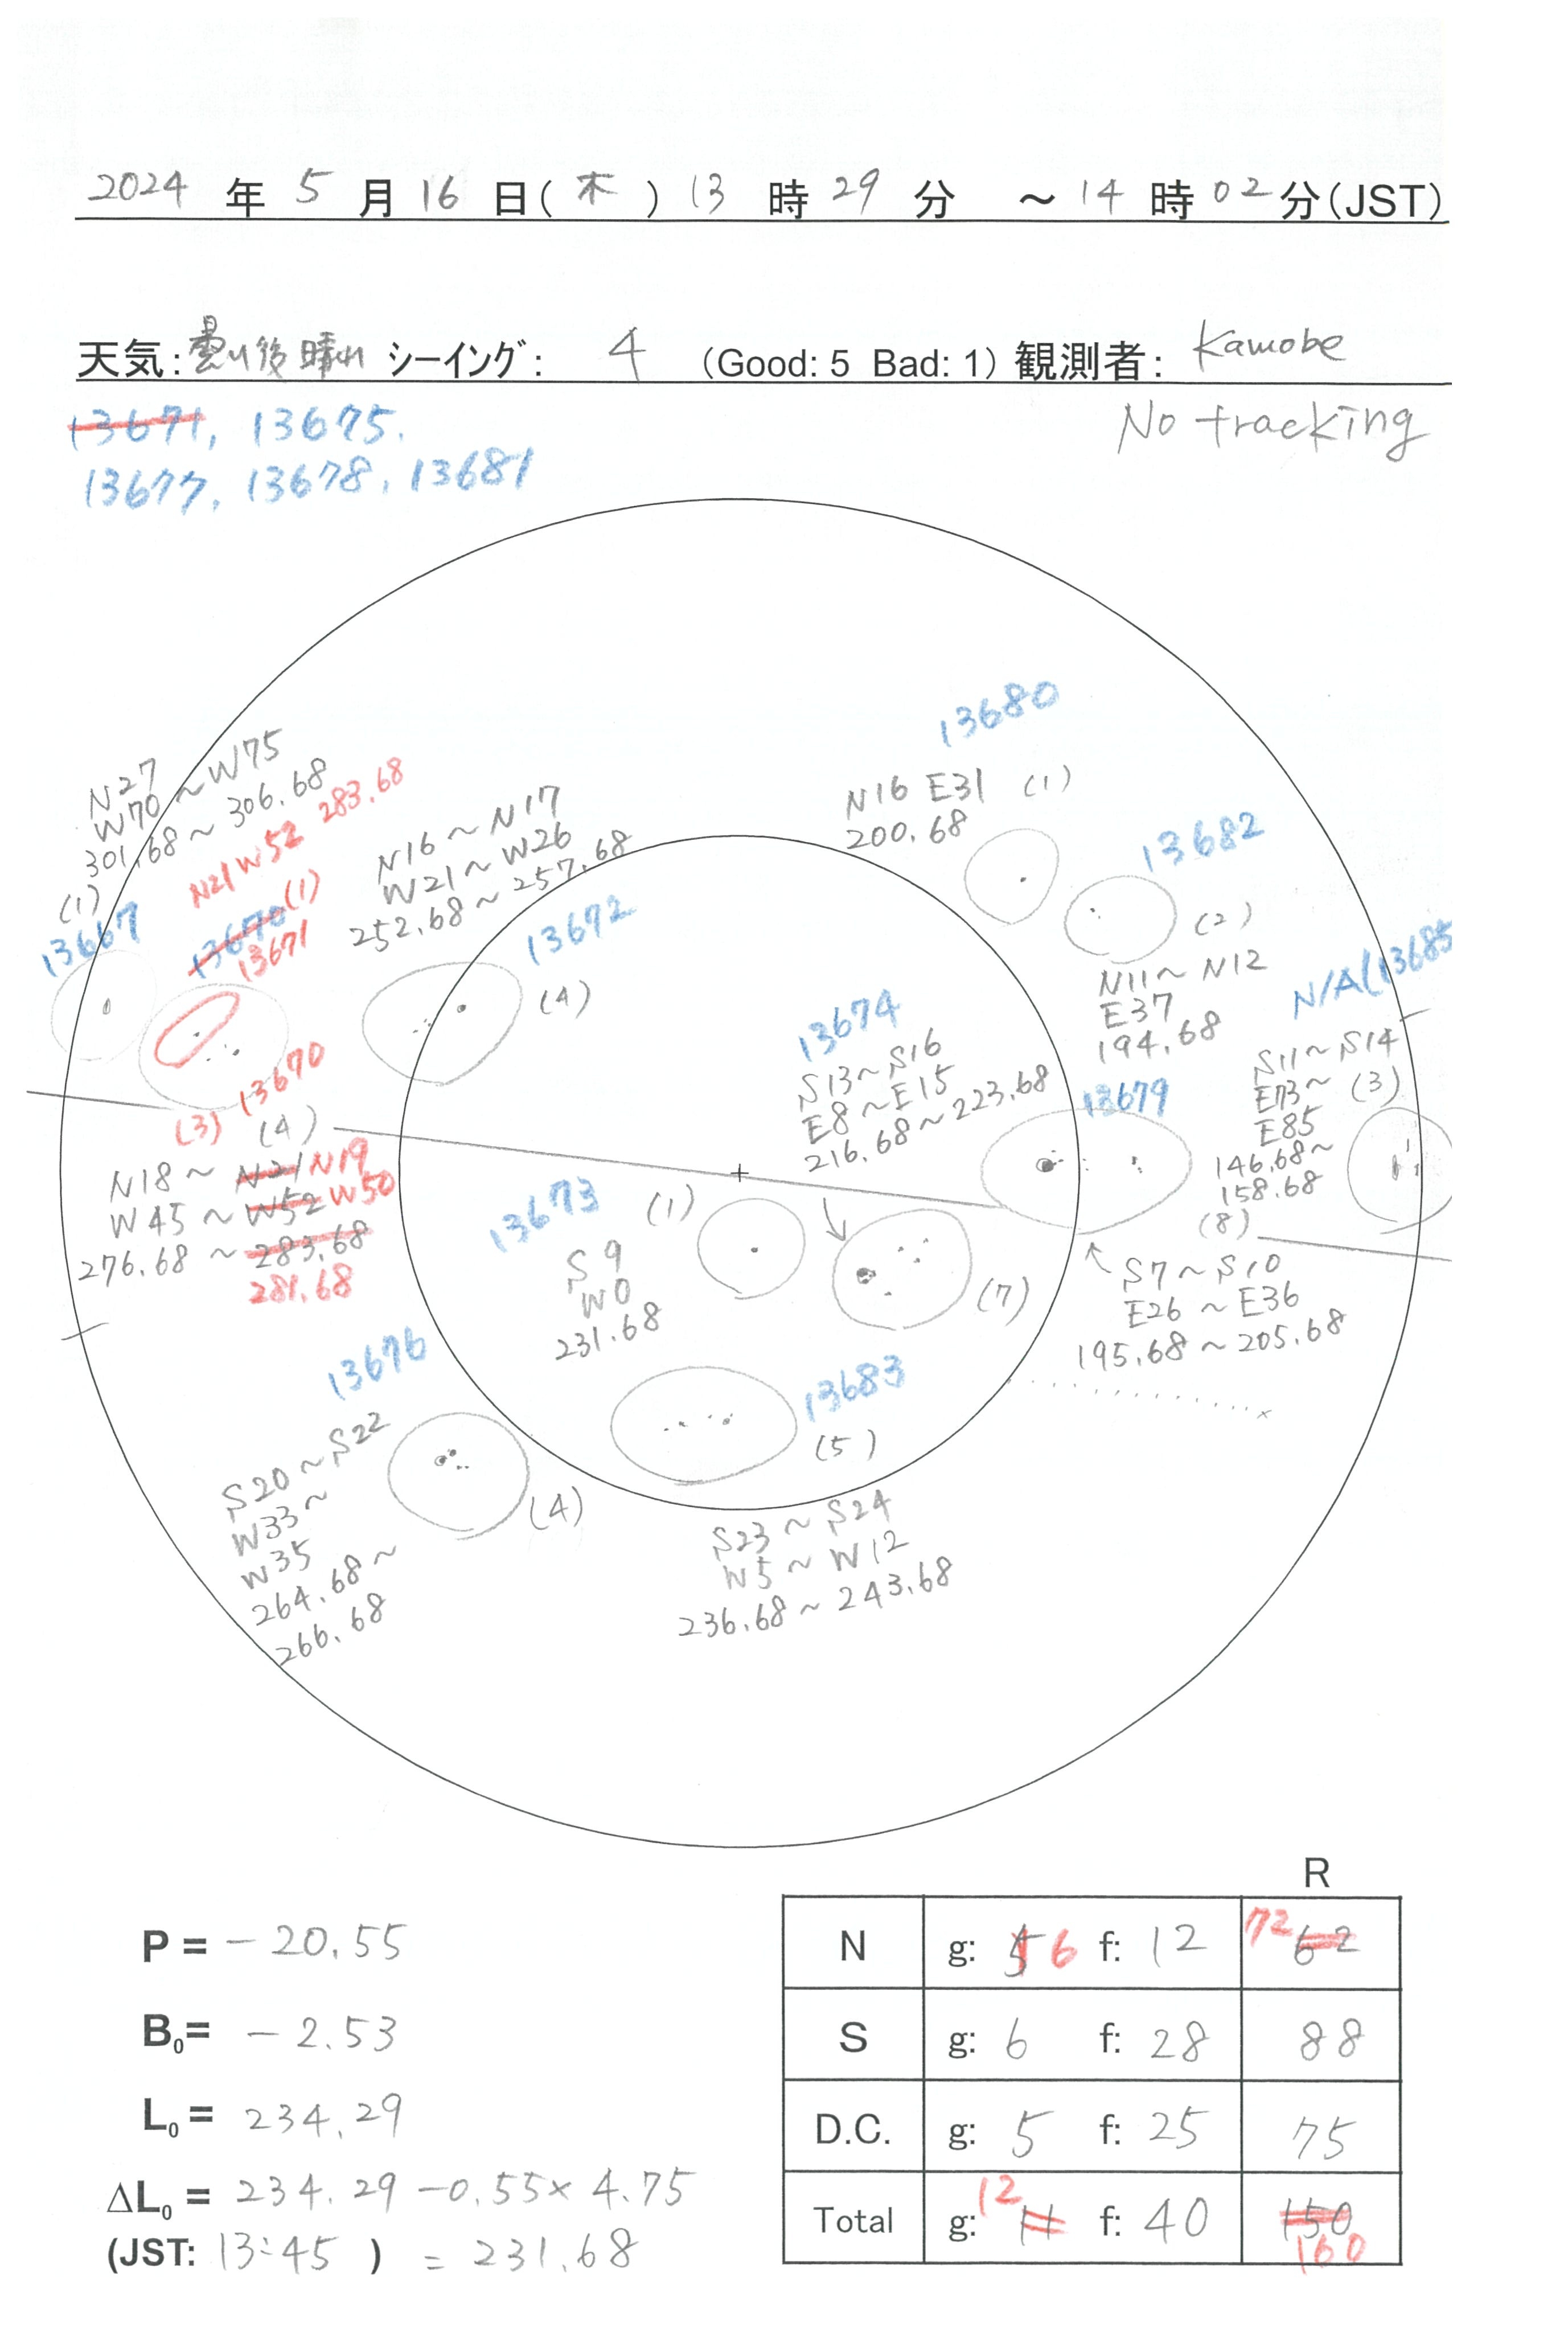 2024 年 5 月 16 日(木) 13 時 29 分 ～ 14 時 02 分(JST)
天気: 曇り後晴れ シーイング: 4 (Good: 5 Bad: 1) 観測者: Kamobe
No tracking
13671, 13675.
13677, 13678, 13681
13680
N16 E31 (1)
200.68
N27
W70～W75
301.68～306.68
(1)
13667
N21W52 283.68
13670 (1)
13671
N16～N17
W21～W26
252.68～257.68
13672
(4)
13682
(2)
N11～N12
E37
194.68
N/A(13685
S11～S14
E73～ (3)
E85
146.68～
158.68
13674
S13～S16
E8～E15
216.68～223.68
13679
(8)
S7～S10
E26～E36
195.68～205.68
13670
(3) (4)
N18～N21 N19
W45～W52 W50
276.68～283.68
281.68
13673 (1)
S9
W0
231.68
(7)
13676
S20～S22
W33～
W35
264.68～
266.68
(4)
13683
(5)
S23～S24
W5～W12
236.68～243.68
R
P = -20.55
B0= -2.53
L0 = 234.29
ΔL0 = 234.29 -0.55×4.75
(JST: 13:45 ) = 231.68
N g: 5 6 f: 12 72 62
S g: 6 f: 28 88
D.C. g: 5 f: 25 75
Total g: 12 11 f: 40 150
160